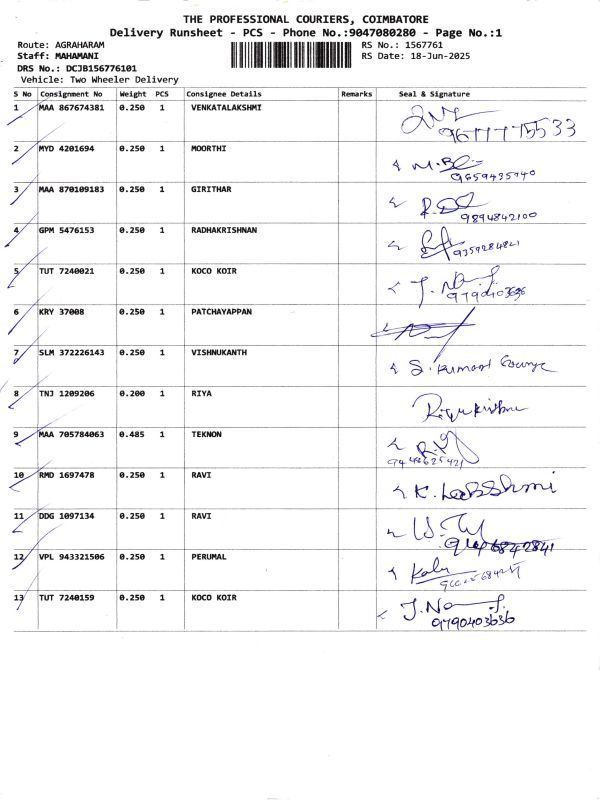 THE PROFESSIONAL COURIERS, COIMBATORE
Delivery Runsheet - PCS - Phone No.:9047080280 - Page No.:1
Route: AGRAHARAM RS No.: 1567761
Staff: MAHAMANI RS Date: 18-Jun-2025
DRS No.: DCJB156776101
Vehicle: Two Wheeler Delivery
S No Consignment No Weight PCS Consignee Details Remarks Seal & Signature
1 MAA 867674381 0.250 1 VENKATALAKSHMI
2 MYD 4201694 0.250 1 MOORTHI
9659435940
3 MAA 870109183 0.250 1 GIRITHAR
9894842100
4 GPM 5476153 0.250 1 RADHAKRISHNAN
9359284821
5 TUT 7240021 0.250 1 KOCO KOIR
9790403636
6 KRY 37008 0.250 1 PATCHAYAPPAN
7 SLM 372226143 0.250 1 VISHNUKANTH
8 TNJ 1209206 0.200 1 RIYA
9 MAA 705784063 0.485 1 TEKNON
10 RMD 1697478 0.250 1 RAVI K. Lakshmi
11 DDG 1097134 0.250 1 RAVI
12 VPL 943321506 0.250 1 PERUMAL
13 TUT 7240159 0.250 1 KOCO KOIR
9790403636